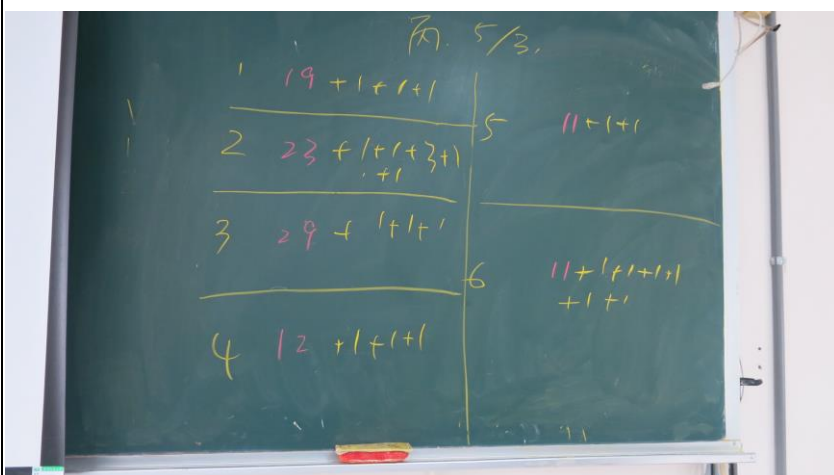 丙. 5/3.
1 19 +1+1+1
2 23 +1+1+3+1
+1
3 29 + 1+1+1
4 12 +1+1+1
5 11+1+1
6 11+1+1+1+1
+1+1